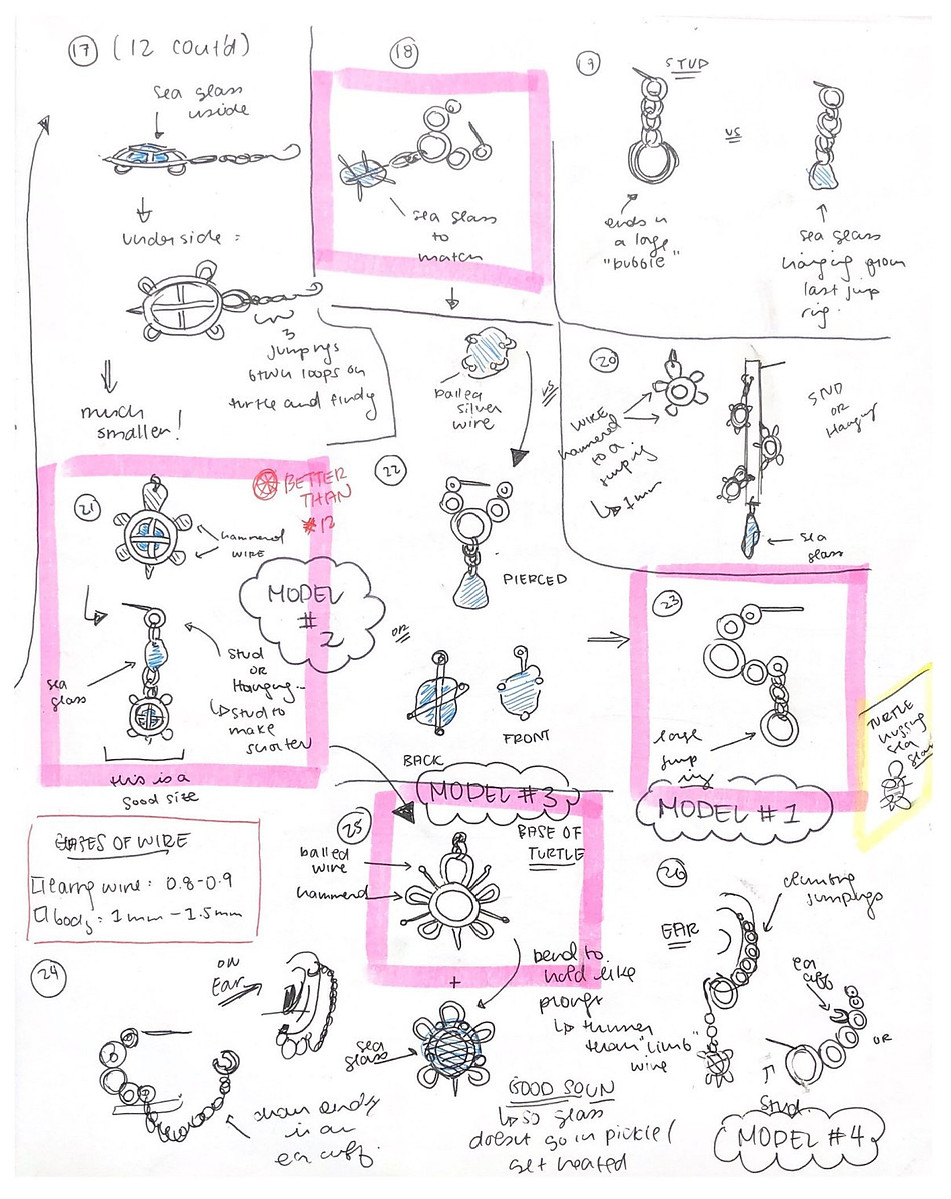 17 (12 cout'd)
sea glass
inside
underside =
3
jumprings
btwn loops on
turtle and findg
much
smaller!
18
sea glass
to
match
balled
silver
wire
vs
19
STUD
vs
ends in
a large
"bubble"
sea glass
hanging from
last jump
ring.
20
WIRE
hammered
to a
jumprig
↳ 1mm
STUD
OR
Hanging
sea
glass
21
BETTER
THAN
#12
hammered
WIRE
MODEL
#
2
sea
glass
stud
OR
Hanging...
↳ stud to
make
shorter
this is a
good size
22
PIERCED
OR
BACK
FRONT
MODEL #3
23
large
jump
rig
MODEL #1
TURTLE
hugging
sea
glass
GAGES OF WIRE
earring wire: 0.8-0.9
body: 1mm-1.5mm
24
ON
EAR
chain ending
in an
ear cuff.
25
BASE OF
TURTLE
balled
wire
hammered
+
sea
glass
bend to
hold like
prongs
↳ thinner
than "limb"
wire
GOOD SOLN
↳ so glass
doesnt go in pickle /
get heated
26
EAR
climbing
jumprigs
ear
cuff
OR
stud.
MODEL #4